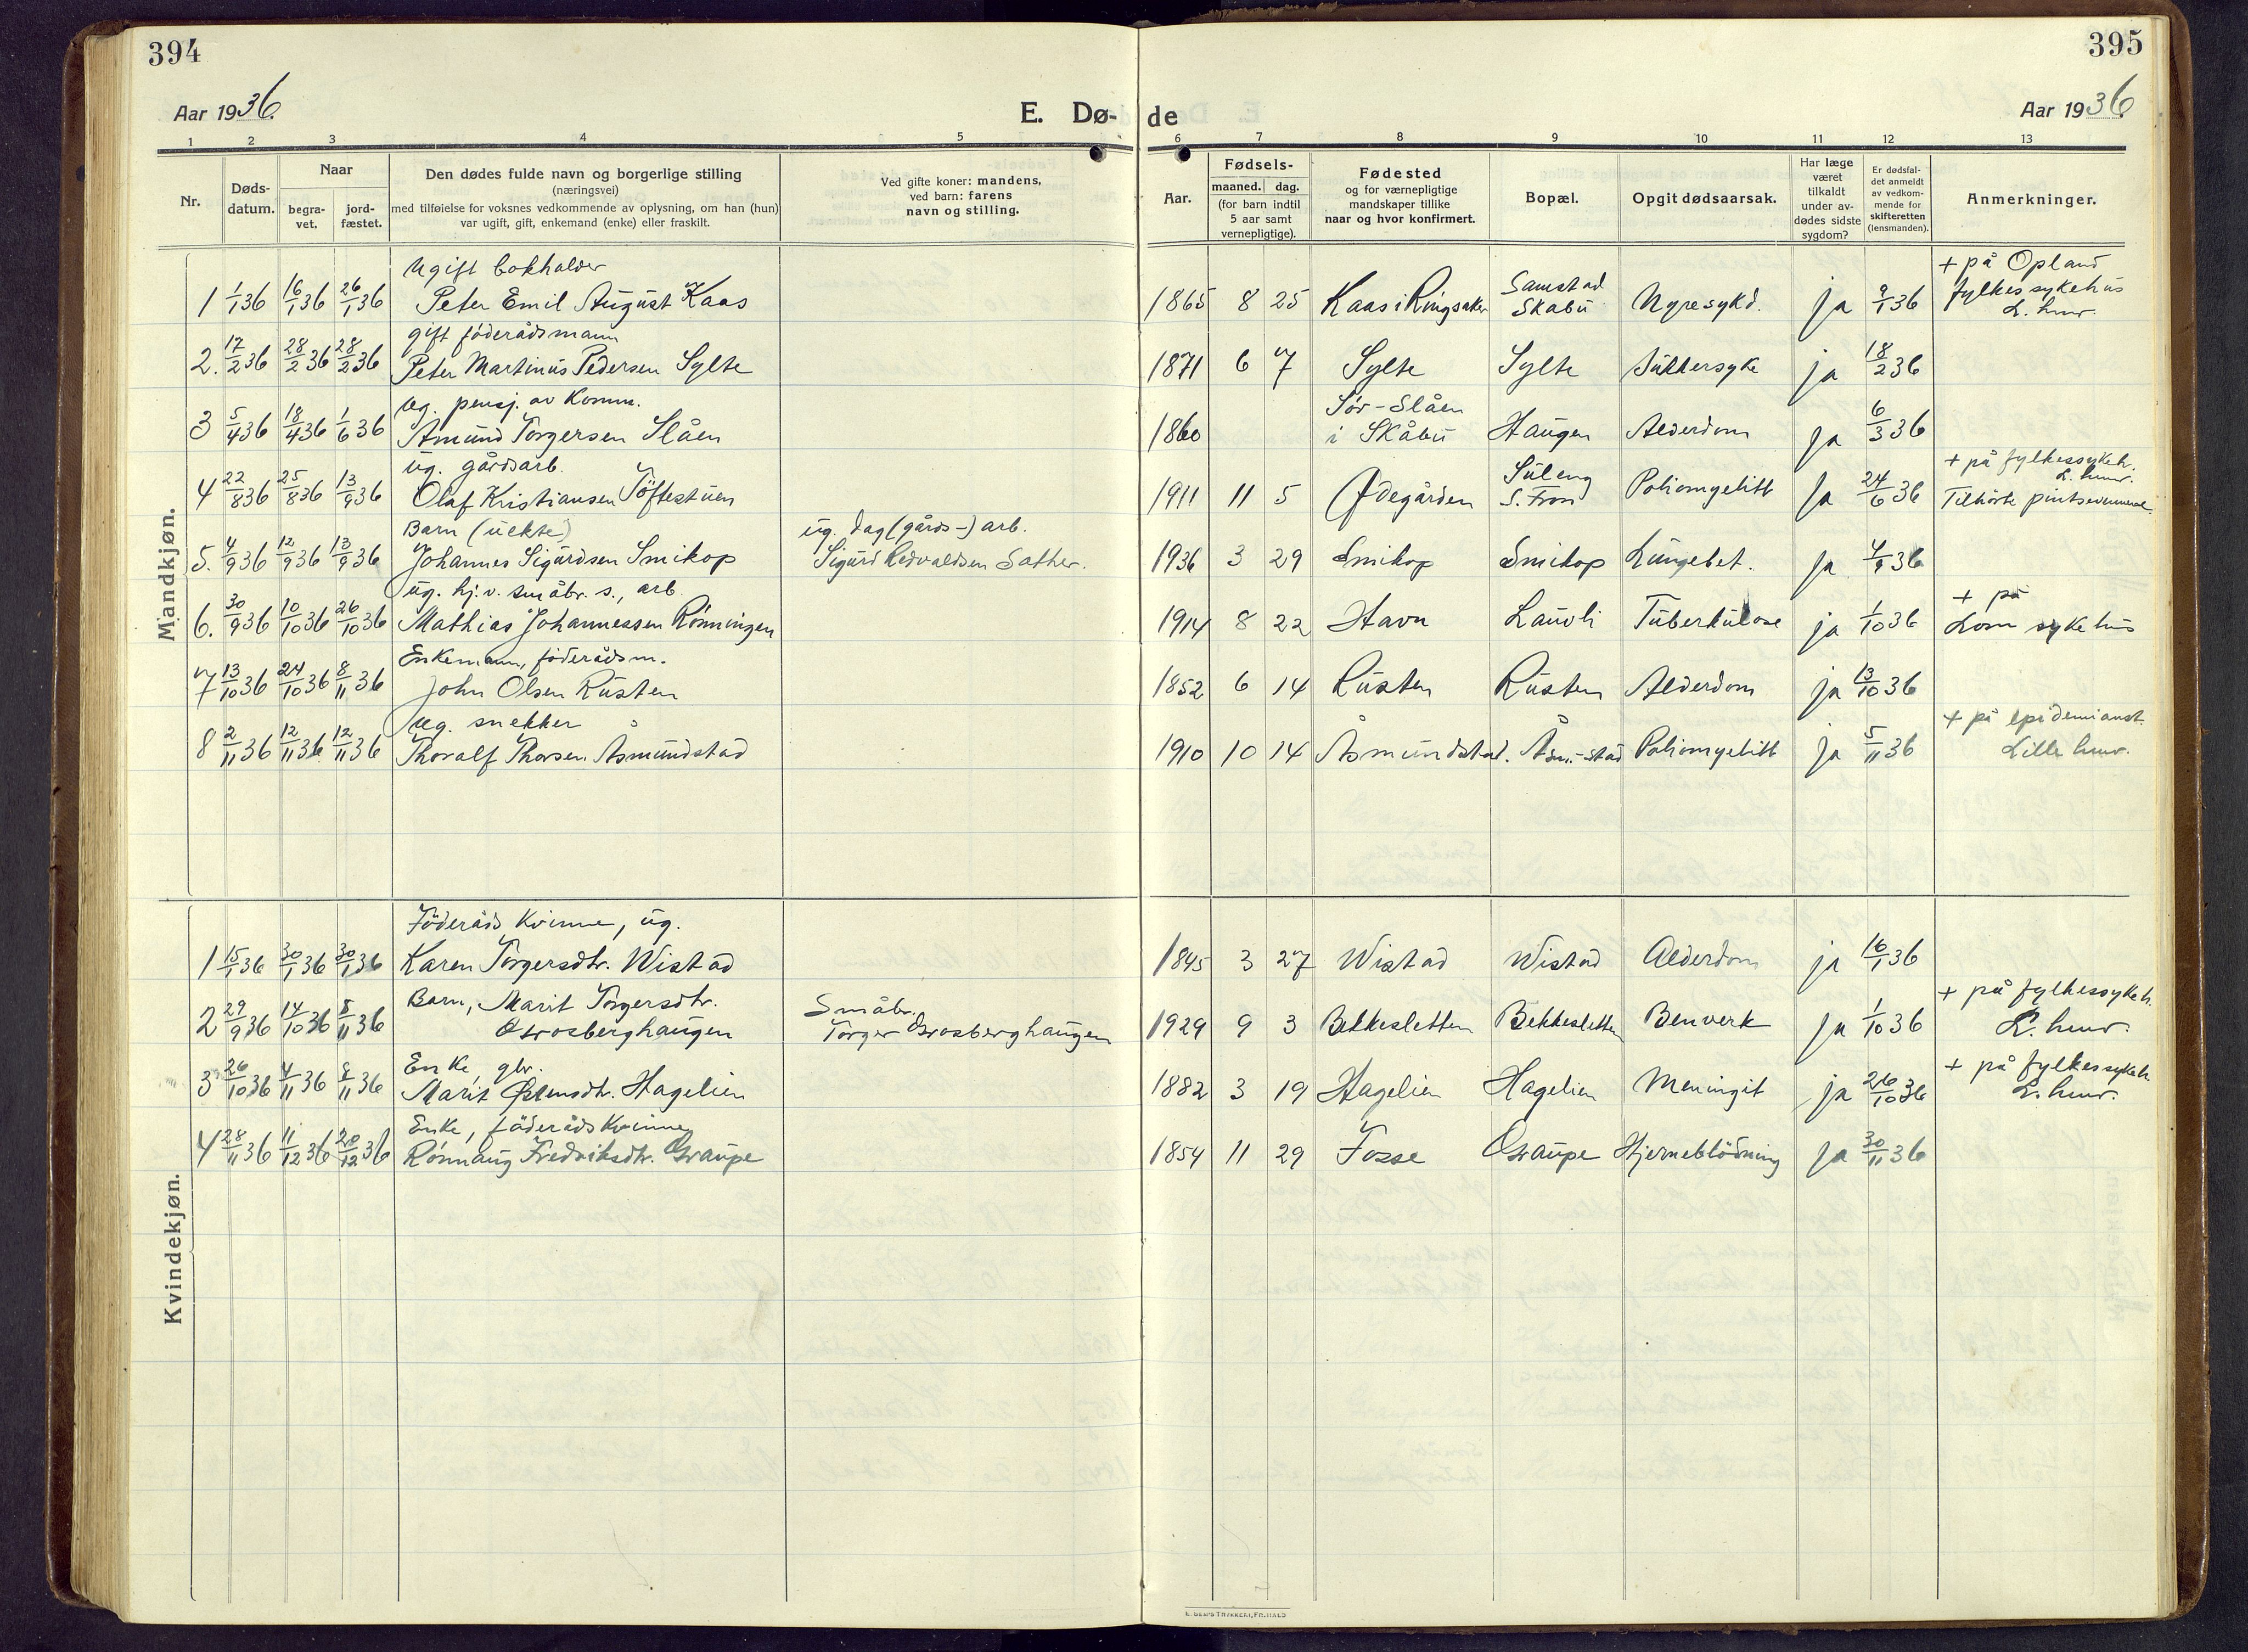 394
395
Aar 1936.
E. Dø-
de
Aar 1936
1 2 3 4 5 6 7 8 9 10 11 12 13
Nr.
Døds-
datum.
Naar
begra-
vet.
jord-
fæstet.
Den dødes fulde navn og borgerlige stilling
(næringsvei)
med tilføielse for voksnes vedkommende av oplysning, om han (hun)
var ugift, gift, enkemand (enke) eller fraskilt.
Ved gifte koner: mandens,
ved barn: farens
navn og stilling.
Aar.
Fødsels-
maaned. dag.
(for barn indtil
5 aar samt
vernepligtige).
Fødested
og for værnepligtige
mandskaper tillike
naar og hvor konfirmert.
Bopæl.
Opgit dødsaarsak.
Har læge
været
tilkaldt
under av-
dødes sidste
sygdom?
Er dødsfal-
det anmeldt
av vedkom-
mende for
skifteretten
(lensmanden).
Anmerkninger.
Mandkjøn.
Ugift bokholder
1 1/1 36 16/1 36 26/1 36 Peter Emil August Kaas 1865 8 25 Kaas i Ringsaker Samstad Skabu Nyresykd. ja 9/1 36 + på Opland fylkessykehus L. hmr.
gift föderådsmann
2. 17/2 36 28/2 36 28/2 36 Peter Martinus Pedersen Sylte 1871 6 7 Sylte Sylte Sukkersyke ja 18/2 36
Ug. pensj. av Komm.
3 5/4 36 18/4 36 1/6 36 Amund Torgersen Slåen 1860 Sör-Slåen i Skåbu Haugen Alderdom ja 6/3 36
ug. gårdsarb.
4 22/8 36 25/8 36 13/9 36 Olaf Kristiansen Töftestuen 1911 11 5 Ødegården Suleng S. Fron Poliomyelitt ja 24/6 36 + på fylkessykeh. L. hmr. Tilhörte pintsevennene.
Barn (uekte) ug. dag (gårds-) arb.
5. 4/9 36 12/9 36 13/9 36 Johannes Sigurdsen Smikop Sigurd Redvaldsen Sather. 1936 3 29 Smikop Smikop Lungebet. ja 4/9 36
ug. hj. v. småbr. s., arb.
6. 30/9 36 10/10 36 26/10 36 Mathias Johannessen Rönningen 1914 8 22 Havn Lauvli Tuberkulose ja 1/10 36 + på Lom sykehus
Enkemann, föderådsm.
7 13/10 36 24/10 36 8/11 36 John Olsen Rusten 1852 6 14 Rusten Rusten Alderdom ja 13/10 36
Ug. snekker
8 2/11 36 12/11 36 12/11 36 Thoralf Thorsen Åsmundstad 1910 10 14 Åsmundstad. Åsm.-stad Poliomyelitt ja 5/11 36 + på epidemianst. Lillehmr.
Kvindekjøn.
Föderåds Kvinne, ug.
1 15/1 36 30/1 36 30/1 36 Karen Torgersdtr. Wistad 1845 3 27 Wistad Wistad Alderdom ja 16/1 36
Barn, Marit Torgersdtr. Småbr.
2 29/9 36 14/10 36 8/11 36 Grosberghaugen Torger Grosberghaugen 1929 9 3 Bekkesletten Bekkesletten Benverk ja 1/10 36 + på fylkessykeh. L. hmr.
Enke, gbr.
3 26/10 36 4/11 36 8/11 36 Marit Østensdtr. Hagelien 1882 3 19 Hagelien Hagelien Meningit ja 26/10 36 + på fylkessykeh. L. hmr.
Enke, föderådskvinne
4 28/11 36 11/12 36 20/12 36 Rönnaug Fredriksdtr. Graupe 1854 11 29 Fosse Graupe Hjerneblödning ja 30/11 36